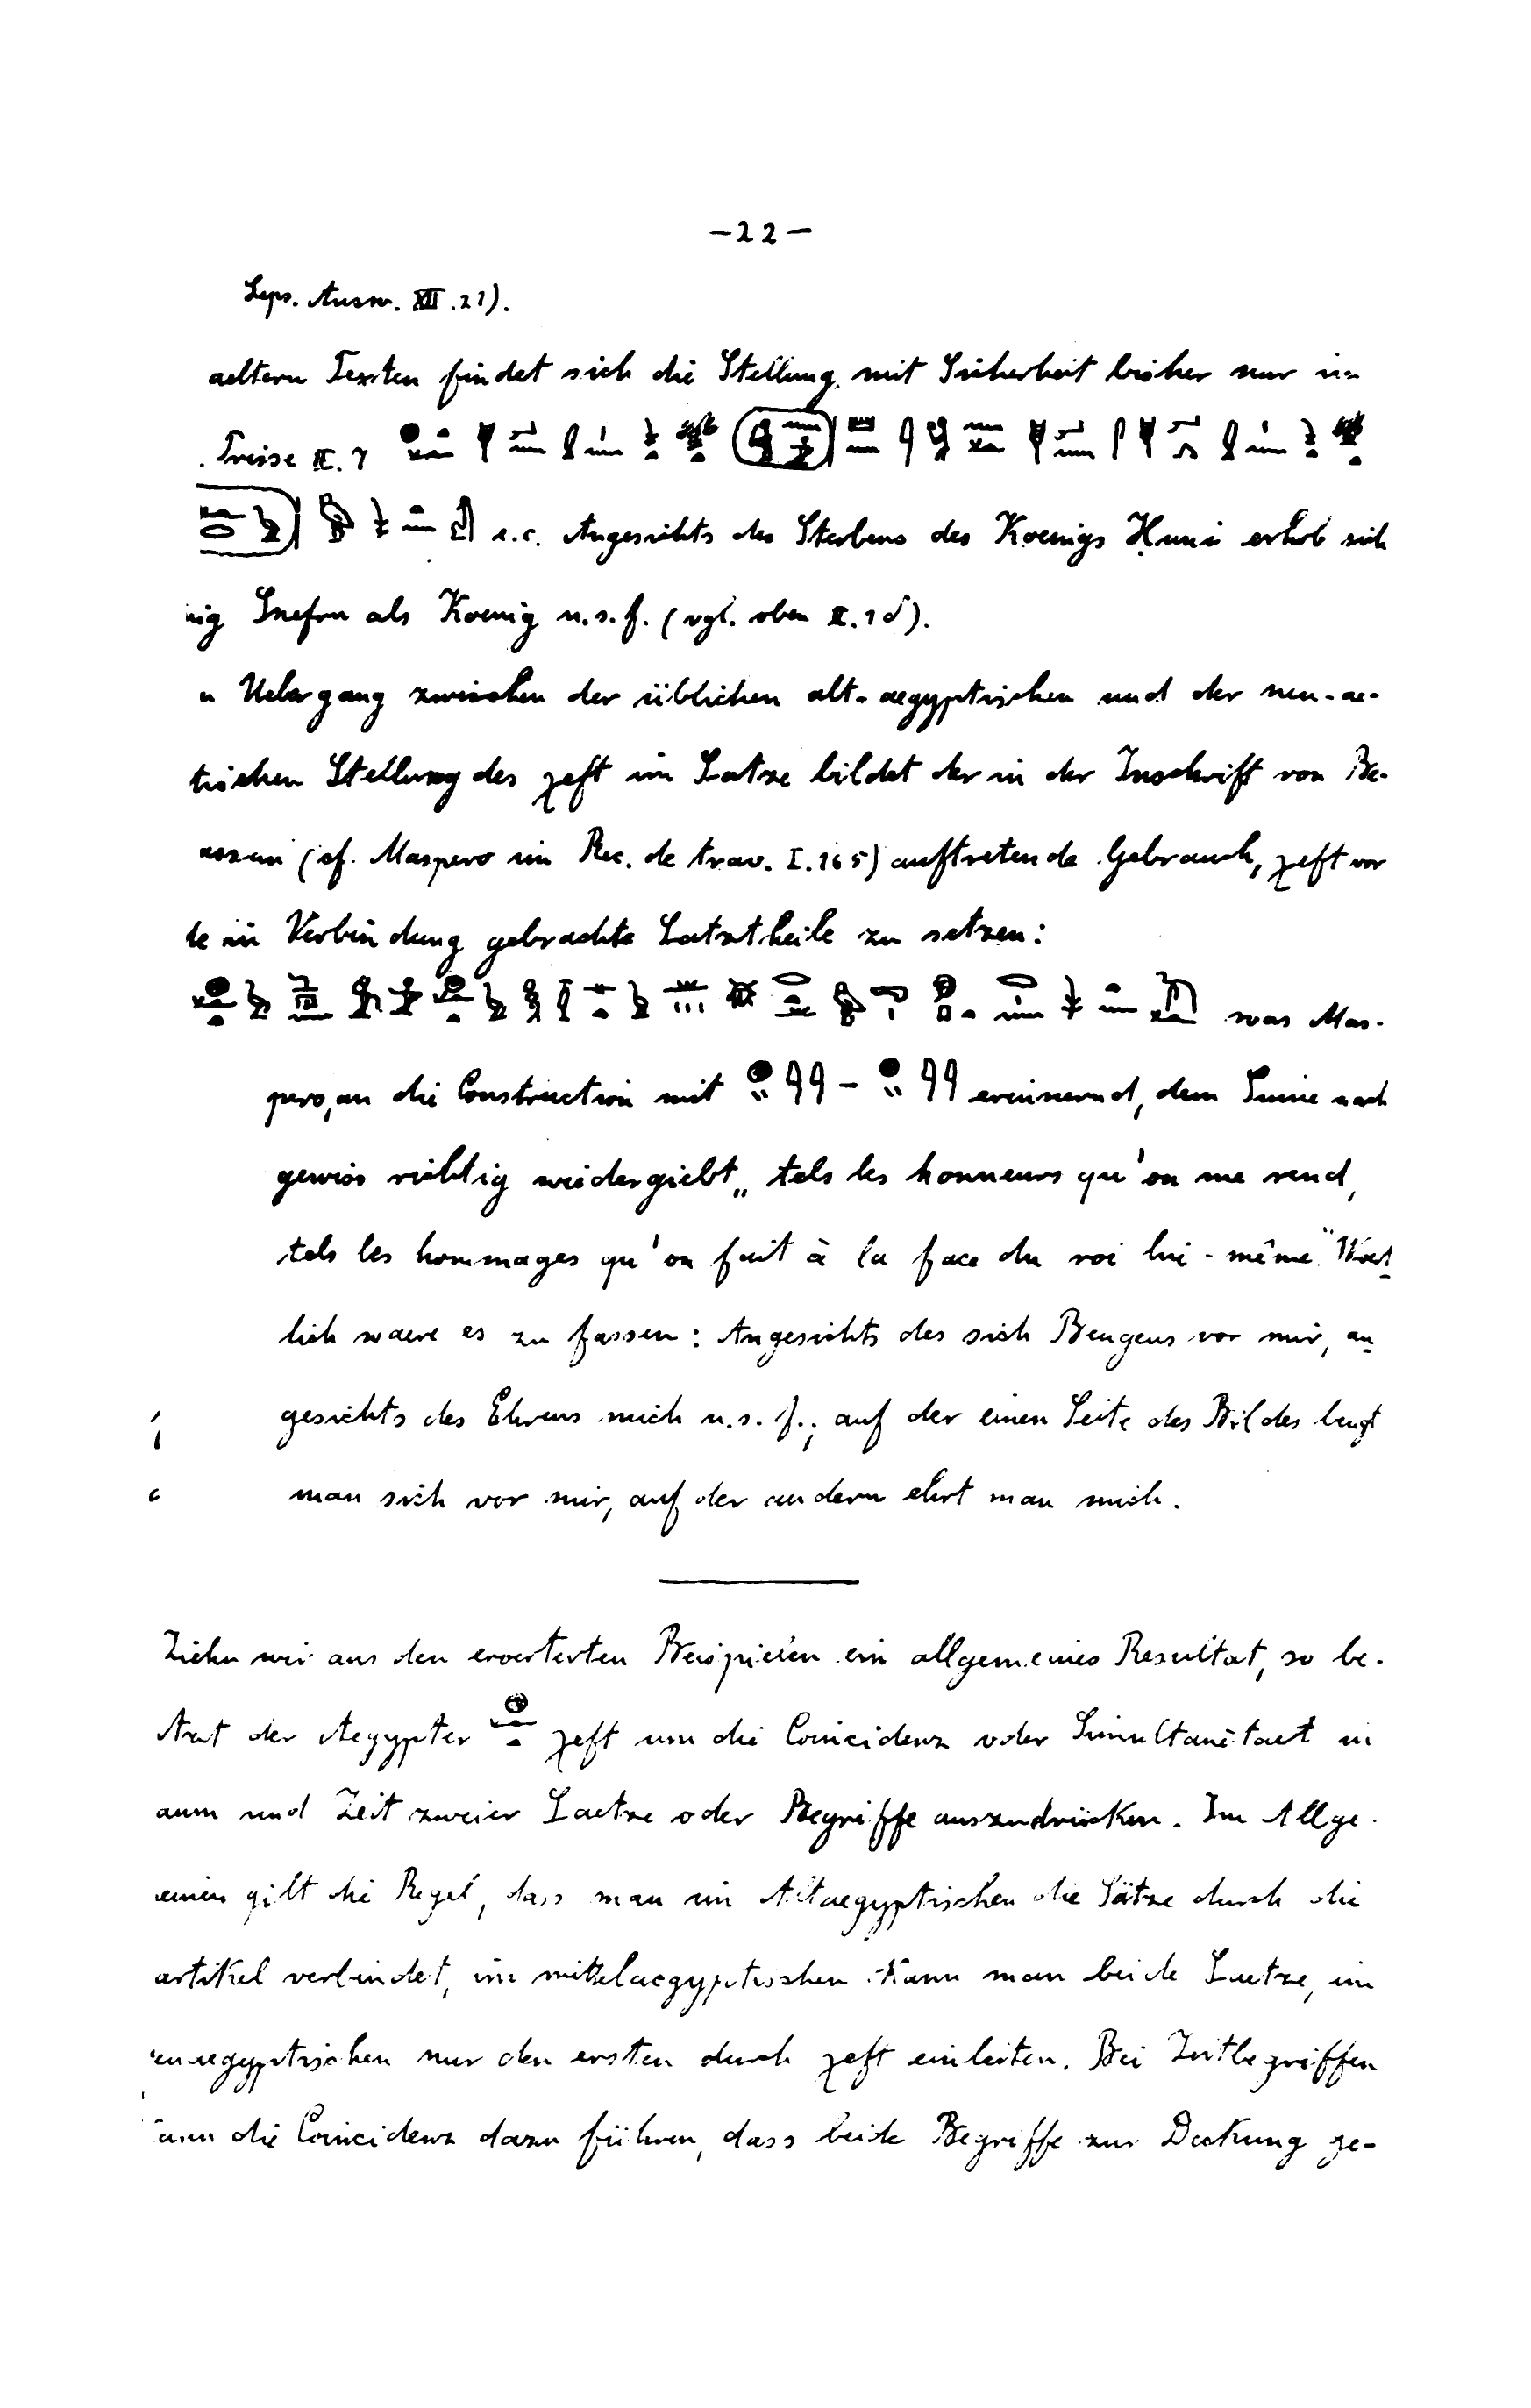 —22—
Leps. Ausw. XII. 21).
aeltern Texten findet sich die Stellung mit Sicherheit bisher nur im
. Prisse II. 7
e.c. Angesichts des Sterbens des Koenigs Ḥuni erhob sich
nig Snefru als Koenig u.s.f. (vgl. oben II. 1 δ).
n Uebergang zwischen der üblichen alt-aegyptischen und der neu-ae-
tischen Stellung des χeft im Satze bildet der in der Inschrift von Be-
assan (cf. Maspero im Rec. de trav. I. 165) auftretende Gebrauch, χeft vor
de in Verbindung gebrachte Satztheile zu setzen:
was Mas-
pero, an die Construction mit – erinnernd, dem Sinne nach
gewiss richtig wiedergiebt „tels les honneurs qu'on me rend,
tels les hommages qu'on fait à la face du roi lui-même." Woert
lich waere es zu fassen: Angesichts des sich Beugens vor mir, an
gesichts des Ehrens mich u.s.f.; auf der einen Seite des Bildes beugt
man sich vor mir, auf der andern ehrt man mich.
Ziehn wir aus den eroerterten Beispielen ein allgemeines Resultat, so be-
der Aegypter χeft um die Coincidenz oder Simultaneitaet in
aum und Zeit zweier Saetze oder Begriffe auszudrücken. Im Allge-
einen gilt die Regel, dass man im Altaegyptischen die Sätze durch die
artikel verbindet, im mittelaegyptischen kann man beide Saetze, im
euaegyptischen nur den ersten durch χeft einleiten. Bei Zeitbegriffen
ann die Coincidenz dazu führen, dass beide Begriffe zur Deckung ge-